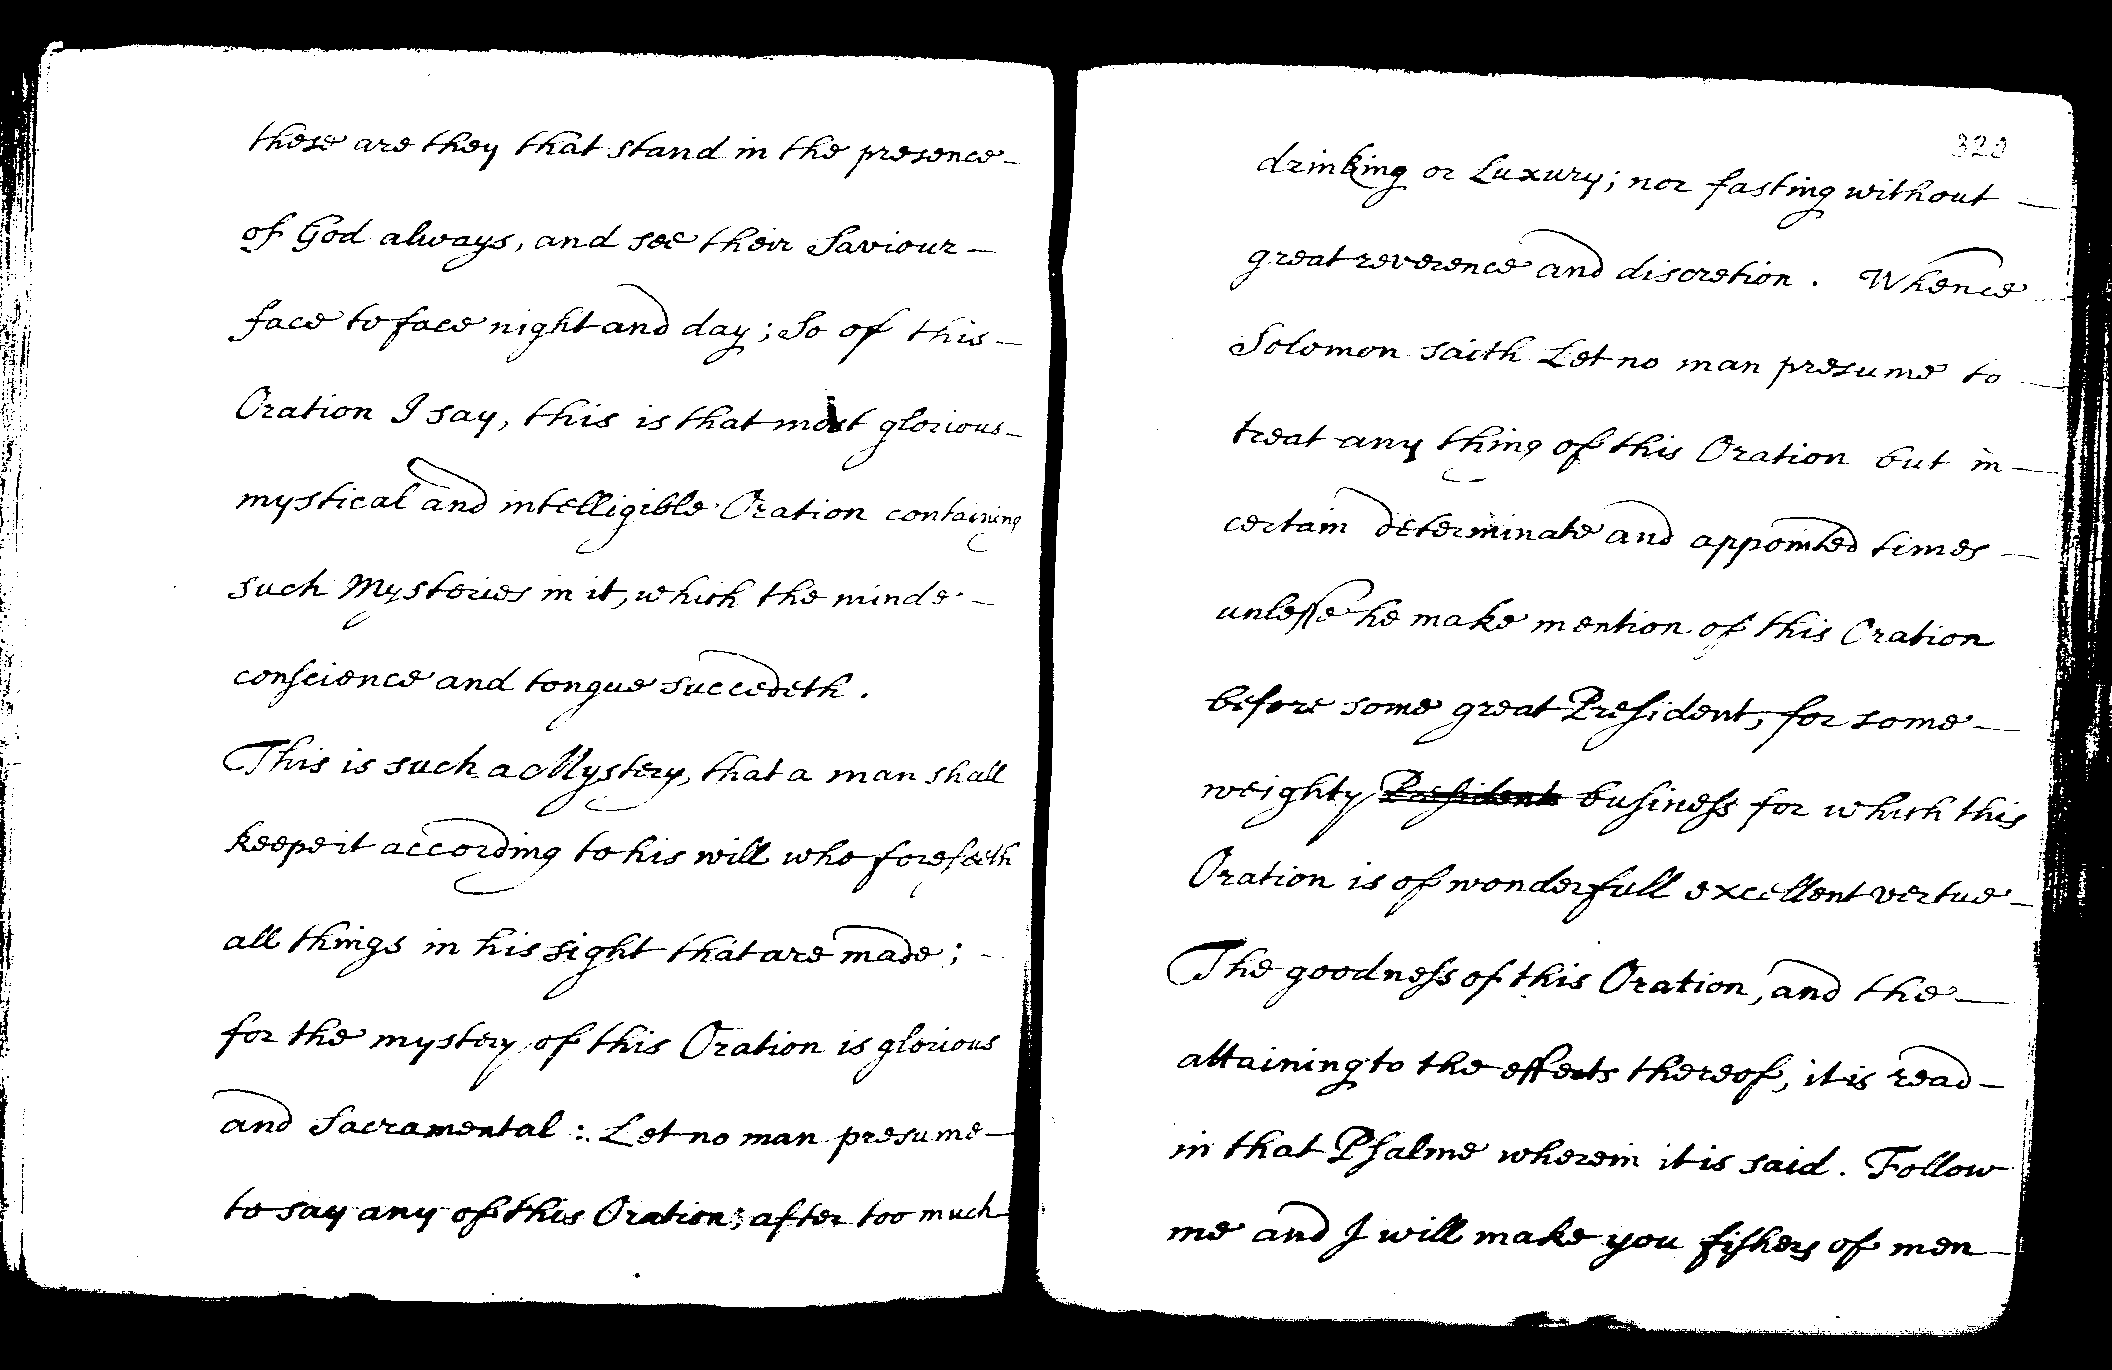 these are they that stand in the presence
of God always, and see their Saviour
face to face night and day; So of this
Oration I say, this is that most glorious
mystical and intelligible Oration containing
such Mysteries in it, which the minde
conscience and tongue succedeth.
This is such a Mystery, that a man shall
keepe it according to his will who foreseeth
all things in his sight that are made;
for the mystery of this Oration is glorious
and Sacramental: Let no man presume
to say any of this Oration; after too much
320
drinking or Luxury; nor fasting without
great reverence and discretion. Whence
Solomon saith Let no man presume to
treat any thing of this Oration but in
certain determinate and appointed times
unlesse he make mention of this Oration
before some great President, for some
weighty President business for which this
Oration is of wonderfull excellent vertue
The goodness of this Oration, and the
attaining to the effects thereof, it is read
in that Psalme wherein it is said. Follow
me and I will make you fishers of men